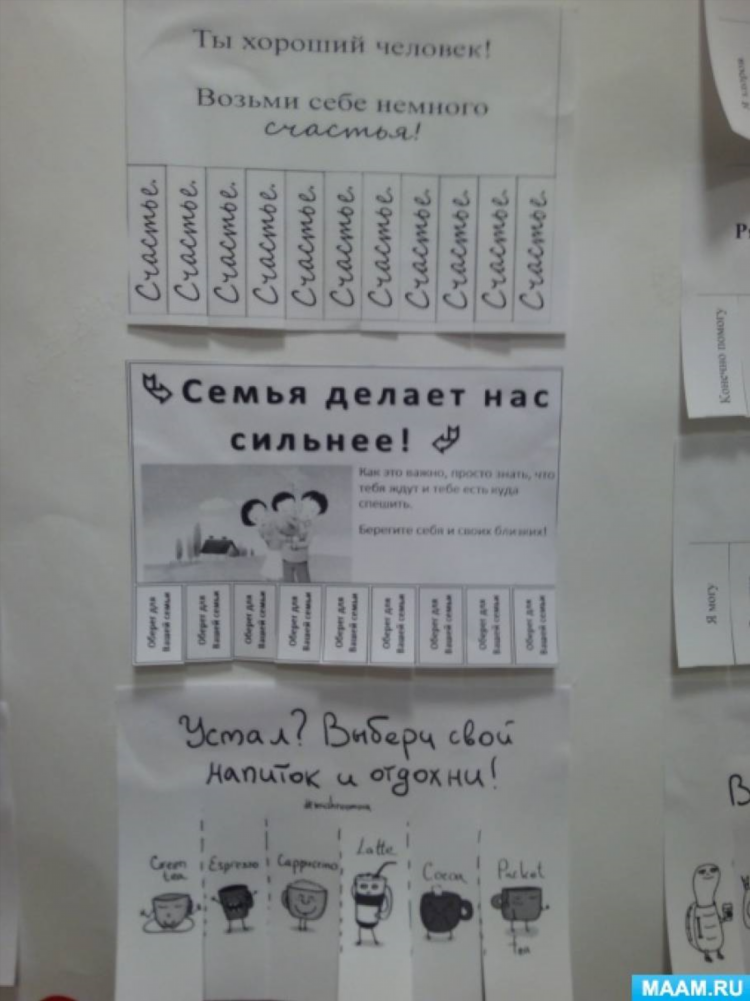 Ты хороший человек!
Возьми себе немного
счастья!
Счастье. Счастье. Счастье. Счастье. Счастье. Счастье. Счастье. Счастье. Счастье. Счастье. Счастье.
Семья делает нас
сильнее!
Как это важно, просто знать, что
тебя ждут и тебе есть куда
спешить.
Берегите себя и своих близких!
Оберег для
Вашей семьи
Оберег для
Вашей семьи
Оберег для
Вашей семьи
Оберег для
Вашей семьи
Оберег для
Вашей семьи
Оберег для
Вашей семьи
Оберег для
Вашей семьи
Оберег для
Вашей семьи
Оберег для
Вашей семьи
Устал? Выбери свой
напиток и отдохни!
Green
tea
Espresso
Cappuccino
Latte
Cocoa
Packet
tea
Я здоров
Конечно помогу
Я могу
В
MAAM.RU